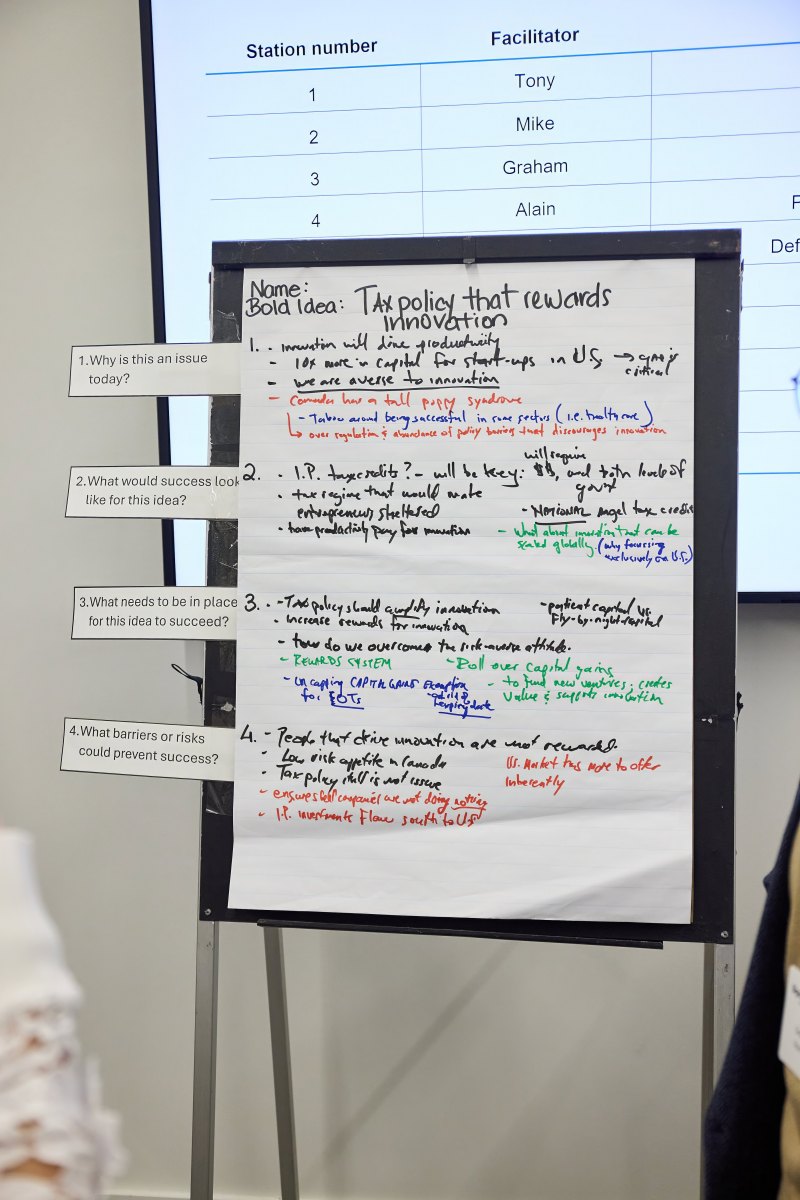 Station number Facilitator
1 Tony
2 Mike
3 Graham
4 Alain
Def
Name:
Bold Idea: Tax policy that rewards
innovation
1.Why is this an issue
today?
1. • innovation will drive productivity
- 10x more in capital for start-ups in U.S. →
critical
- we are averse to innovation
- Canada has a tall poppy syndrome
- Taboo around being successful in some sectors (i.e. healthcare)
↳ over regulation & abundance of policy barriers that discourages innovation
2.What would success look
like for this idea?
2. • I.P. tax credits? - will be key: will require $$, and both levels of
gov't
• tax regime that would make
entrepreneurs sheltered
- NATIONAL angel tax credit
• have productivity pay for innovation
- What about innovation that can be
scaled globally. (why focussing
exclusively on U.S.)
3.What needs to be in place
for this idea to succeed?
3. • - Tax policy should amplify innovation
• increase rewards for innovation
- patient capital vs.
Fly-by-night-capital
- how do we overcome the risk-averse attitude.
- REWARDS SYSTEM
- Roll over capital gains
- to fund new ventures; creates
value & supports innovation
- uncapping CAPITAL GAINS Exemption
for EOTs
4.What barriers or risks
could prevent success?
4. - People that drive innovation are not rewarded.
• Low risk appetite in Canada
• Tax policy still is not issue
U.S. market has more to offer
inherently
- ensures that companies are not doing nothing
- I.P. investments flow south to US